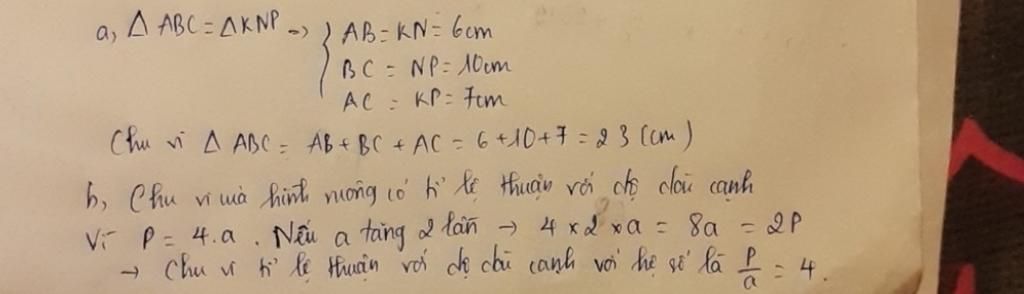 a, Δ ABC = ΔKNP → { AB = KN = 6cm
BC = NP = 10cm
AC = KP = 7cm
Chu vi Δ ABC = AB + BC + AC = 6 + 10 + 7 = 23 (cm)
b, Chu vi của hình vuông có tỉ lệ thuận với độ dài cạnh
Vì P = 4.a . Nếu a tăng 2 lần → 4 × 2 × a = 8a = 2P
→ Chu vi tỉ lệ thuận với độ dài cạnh với hệ số là P/a = 4.